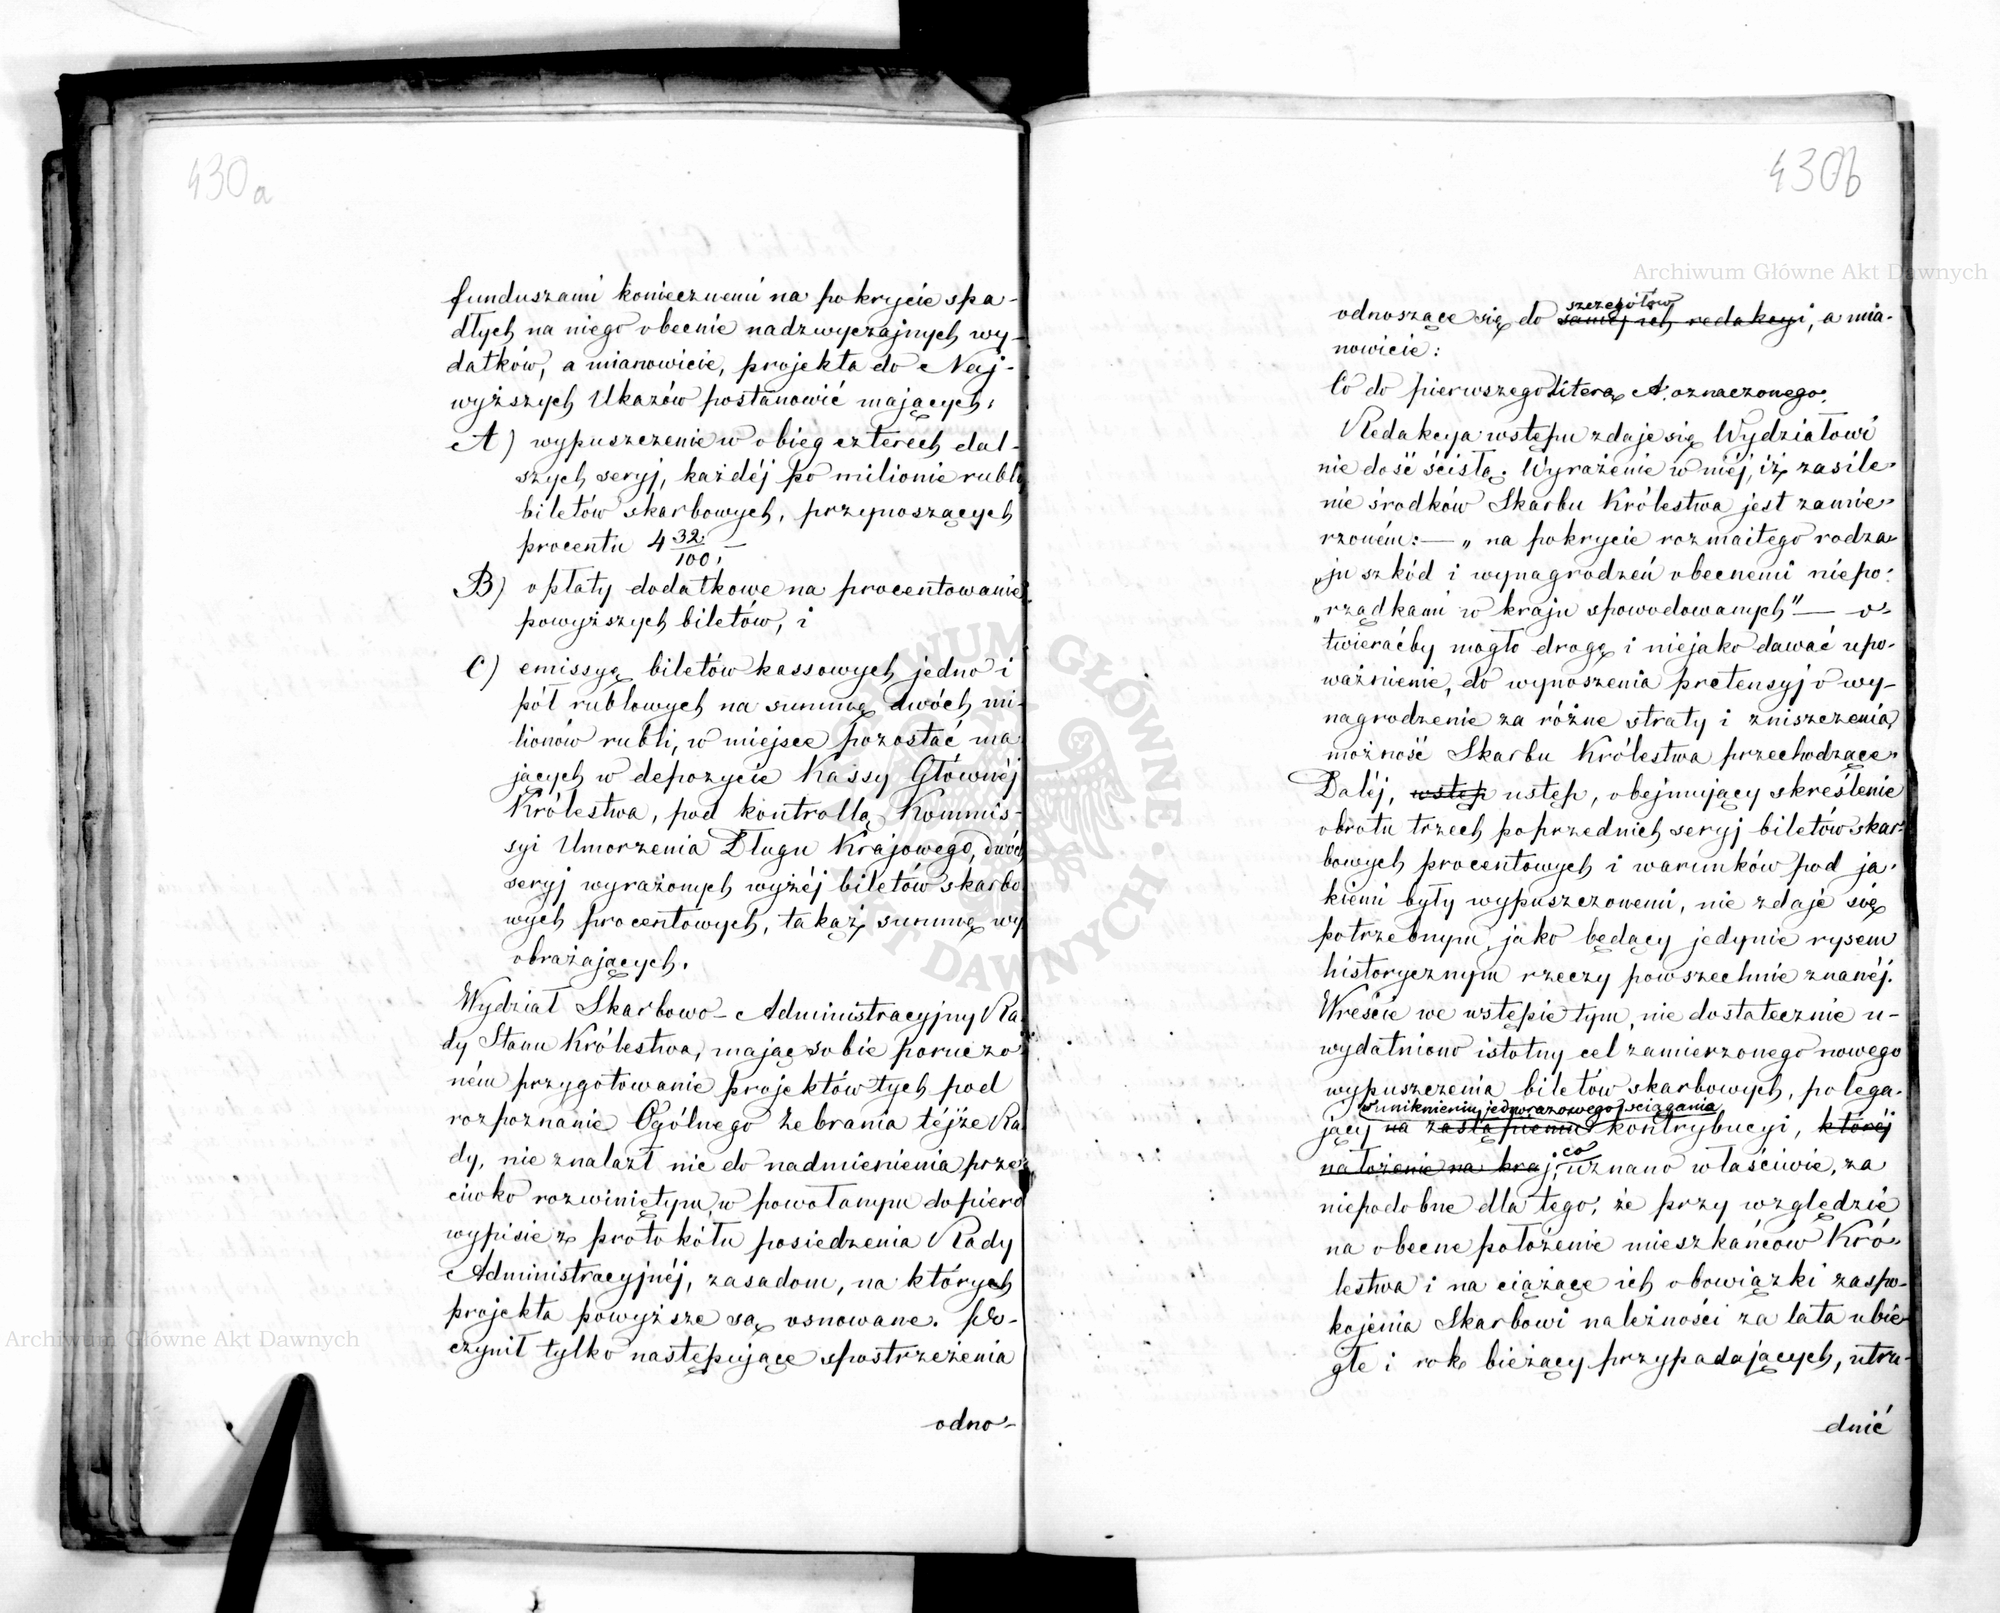 430a
funduszami koniecznemi na pokrycie spa-
dłych na niego obecnie nadzwyczajnych wy-
datków, a mianowicie, projekta do Naj-
wyższych Ukazów postanowić mających:
A) wypuszczenie w obieg czterech dal-
szych seryj, każdéj po milionie rubli
biletów skarbowych, przynoszących
procentu 4 32/100, —
B) opłaty dodatkowe na procentowanie
powyższych biletów, i
C) emissyę biletów kassowych jedno i
pół rublowych na summę dwóch mi-
lionów rubli, w miejsce pozostać ma
jących w depozycie Kassy Głównéj
Królestwa, pod kontrollą Kommis-
syi Umorzenia Długu Krajowego, dwóch
seryj wyrażonych wyżéj biletów skarbo
wych procentowych, takąż summę wy
obrażających.
Wydział Skarbowo-Administracyjny Ra
dy Stanu Królestwa, mając sobie poruczo
ném przygotowanie projektów tych pod
rozpoznanie Ogólnego Zebrania téjże Ra
dy, nie znalazł nic do nadmienienia prze
ciwko rozwiniętym w powołanym dopiero
wypisie z protokółu posiedzenia Rady
Administracyjnéj, zasadom, na których
projekta powyższe są osnowane. Po-
czynił tylko następujące spostrzeżenia
odno-
430b
Archiwum Główne Akt Dawnych
szczegółów
odnoszące się do saméj ich redakcyi, a mia-
nowicie:
Co do pierwszego literą A. oznaczonego.
Redakcya wstępu zdaje się Wydziałowi
nie dość ścisłą. Wyrażenie w niéj, iż zasile-
nie środków Skarbu Królestwa jest zamie-
rzoném: — „na pokrycie rozmaitego rodza-
„ju szkód i wynagrodzeń obecnemi niepo-
„rządkami w kraju spowodowanych" — o-
twieraćby mogło drogę i niejako dawać upo-
ważnienie, do wynoszenia pretensyj o wy-
nagrodzenie za różne straty i zniszczenia,
możność Skarbu Królestwa przechodzące.
Daléj, wstęp ustęp, obejmujący skreślenie
obrotu trzech poprzednich seryj biletów skar-
bowych procentowych i warunków pod ja-
kiemi były wypuszczonemi, nie zdaje się
potrzebnym, jako będący jedynie rysem
historycznym rzeczy powszechnie znanéj.
Wreście we wstępie tym, nie dostatecznie u-
wydatniono istotny cel zamierzonego nowego
wypuszczenia biletów skarbowych, polega-
w uniknieniu jednorazowego ściągania
jący na zastąpieniu kontrybucyi, któréj
co
nałożenie na kraj, uznano właściwie, za
niepodobne dla tego, że przy względzie
na obecne położenie mieszkańców Kró-
lestwa i na ciążące ich obowiązki zaspo-
kojenia Skarbowi należności za lata ubie-
głe i rok bieżący przypadających, utru-
dnić
Archiwum Główne Akt Dawnych
ARCHIWUM GŁÓWNE AKT DAWNYCH